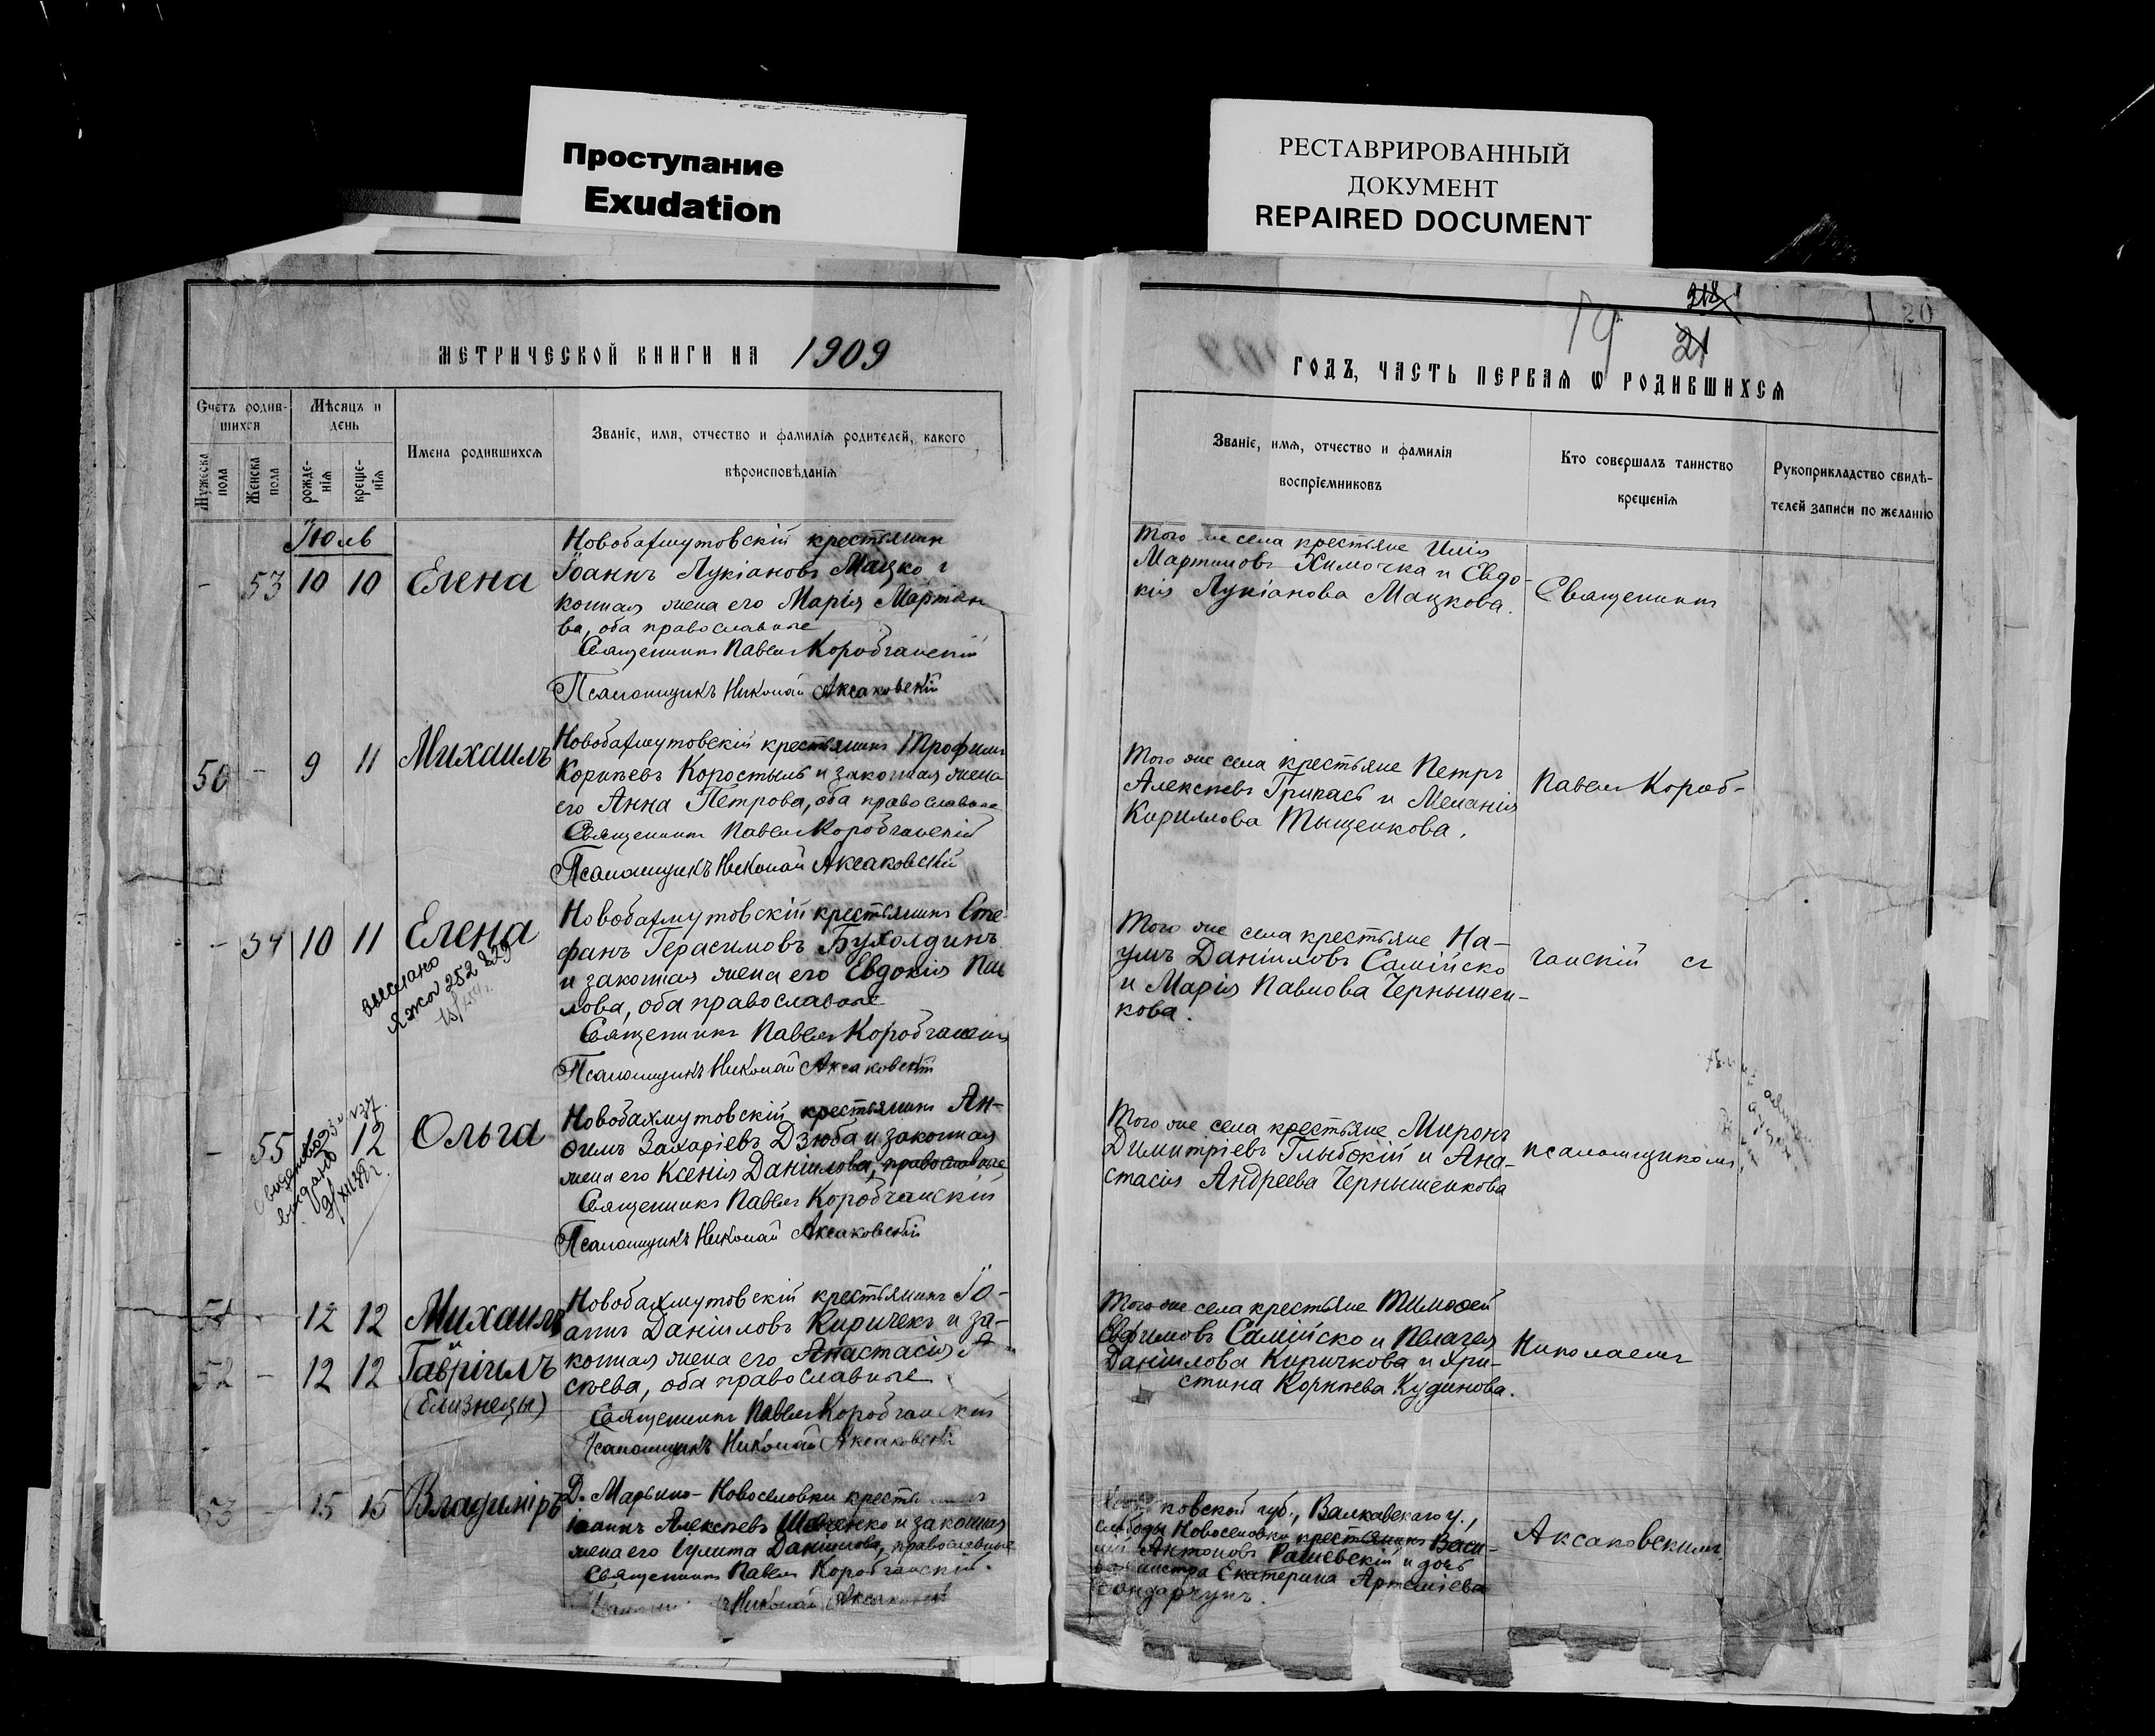 Проступание
Exudation
РЕСТАВРИРОВАННЫЙ
ДОКУМЕНТ
REPAIRED DOCUMENT
МЕТРИЧЕСКОЙ КНИГИ НА 1909
Счетъ родив-
шихся
Мѣсяцъ и
день
Мужеска
пола
Женска
пола
рожде-
нія
креще-
нія
Имена родившихся
Званіе, имя, отчество и фамилія родителей, какого
вѣроисповѣданія
Іюль
- 53 10 10 Елена
Новобахмутовскій крестьянин
Іоаннъ Лукіановъ Мацко и
конная жена его Марія Мартин
ва, оба православные
Священникъ Павелъ Коробчанскій
Псаломщикъ Николай Аксаковскій
50 - 9 11 Михаилъ
Новобахмутовскій крестьянинъ Трофимъ
Корнѣевъ Коростыль и законная жена
его Анна Петрова, оба православные
Священникъ Павелъ Коробчанскій
Псаломщикъ Николай Аксаковскій
- 54 10 11 Елена
выслано
Я ЖОХ 252829
Новобахмутовскій крестьянинъ Сте-
фанъ Герасимовъ Бухолдинъ
и законная жена его Евдокія Пав
лова, оба православные
Священникъ Павелъ Коробчанскій
Псаломщикъ Николай Аксаковскій
- 55 12 Ольга
выдано
Новобахмутовскій крестьянинъ Ан-
ѳимъ Захаріевъ Дзюба и законная
жена его Ксенія Даніилова, православные
Священникъ Павелъ Коробчанскій
Псаломщикъ Николай Аксаковскій
51 - 12 12 Михаилъ
52 - 12 12 Гавріилъ
(близнецы)
Новобахмутовскій крестьянинъ Іо-
аннъ Даніиловъ Киричекъ и за-
конная жена его Анастасія А
сѣева, оба православные
Священникъ Павелъ Коробчанскій
Псаломщикъ Николай Аксаковскій
53 - 15 15 Владиміръ
Д. Марьино-Новоселовки кресть
Іоаннъ Алексѣевъ Шевченко и законная
жена его Іулита Даніилова, православные
Священникъ Павелъ Коробчанскій.
Николай Аксаковскій
218
19 21
20
ГОДЪ, ЧАСТЬ ПЕРВАЯ Ѡ РОДИВШИХСЯ
Званіе, имя, отчество и фамилія
воспріемниковъ
Кто совершалъ таинство
крещенія
Рукоприкладство свидѣ-
телей записи по желанію
Того же села крестьяне Илія
Мартиновъ Химочка и Евдо-
кія Лукіанова Мацкова.
Священникъ
Того же села крестьяне Петръ
Алексѣевъ Грикасъ и Меланія
Кириллова Тыщенкова.
Павелъ Короб-
Того же села крестьяне На-
умъ Даніиловъ Самійско
и Марія Павлова Чернышен-
кова.
чанскій съ
Того же села крестьяне Миронъ
Димитріевъ Глыбокій и Ана-
стасія Андреева Чернышенкова
псаломщикомъ
Того же села крестьяне Тимоѳей
Евфимовъ Самійско и Пелагея
Даніилова Киричкова и Хри-
стина Корнѣева Кудинова.
Николаемъ
ковской губ., Валковскаго у.,
слободы Новоселовки крестьянинъ Васи-
лій Антоновъ Рашевскій и дочь
Екатерина Артеміева
Бондарчукъ.
Аксаковскимъ.